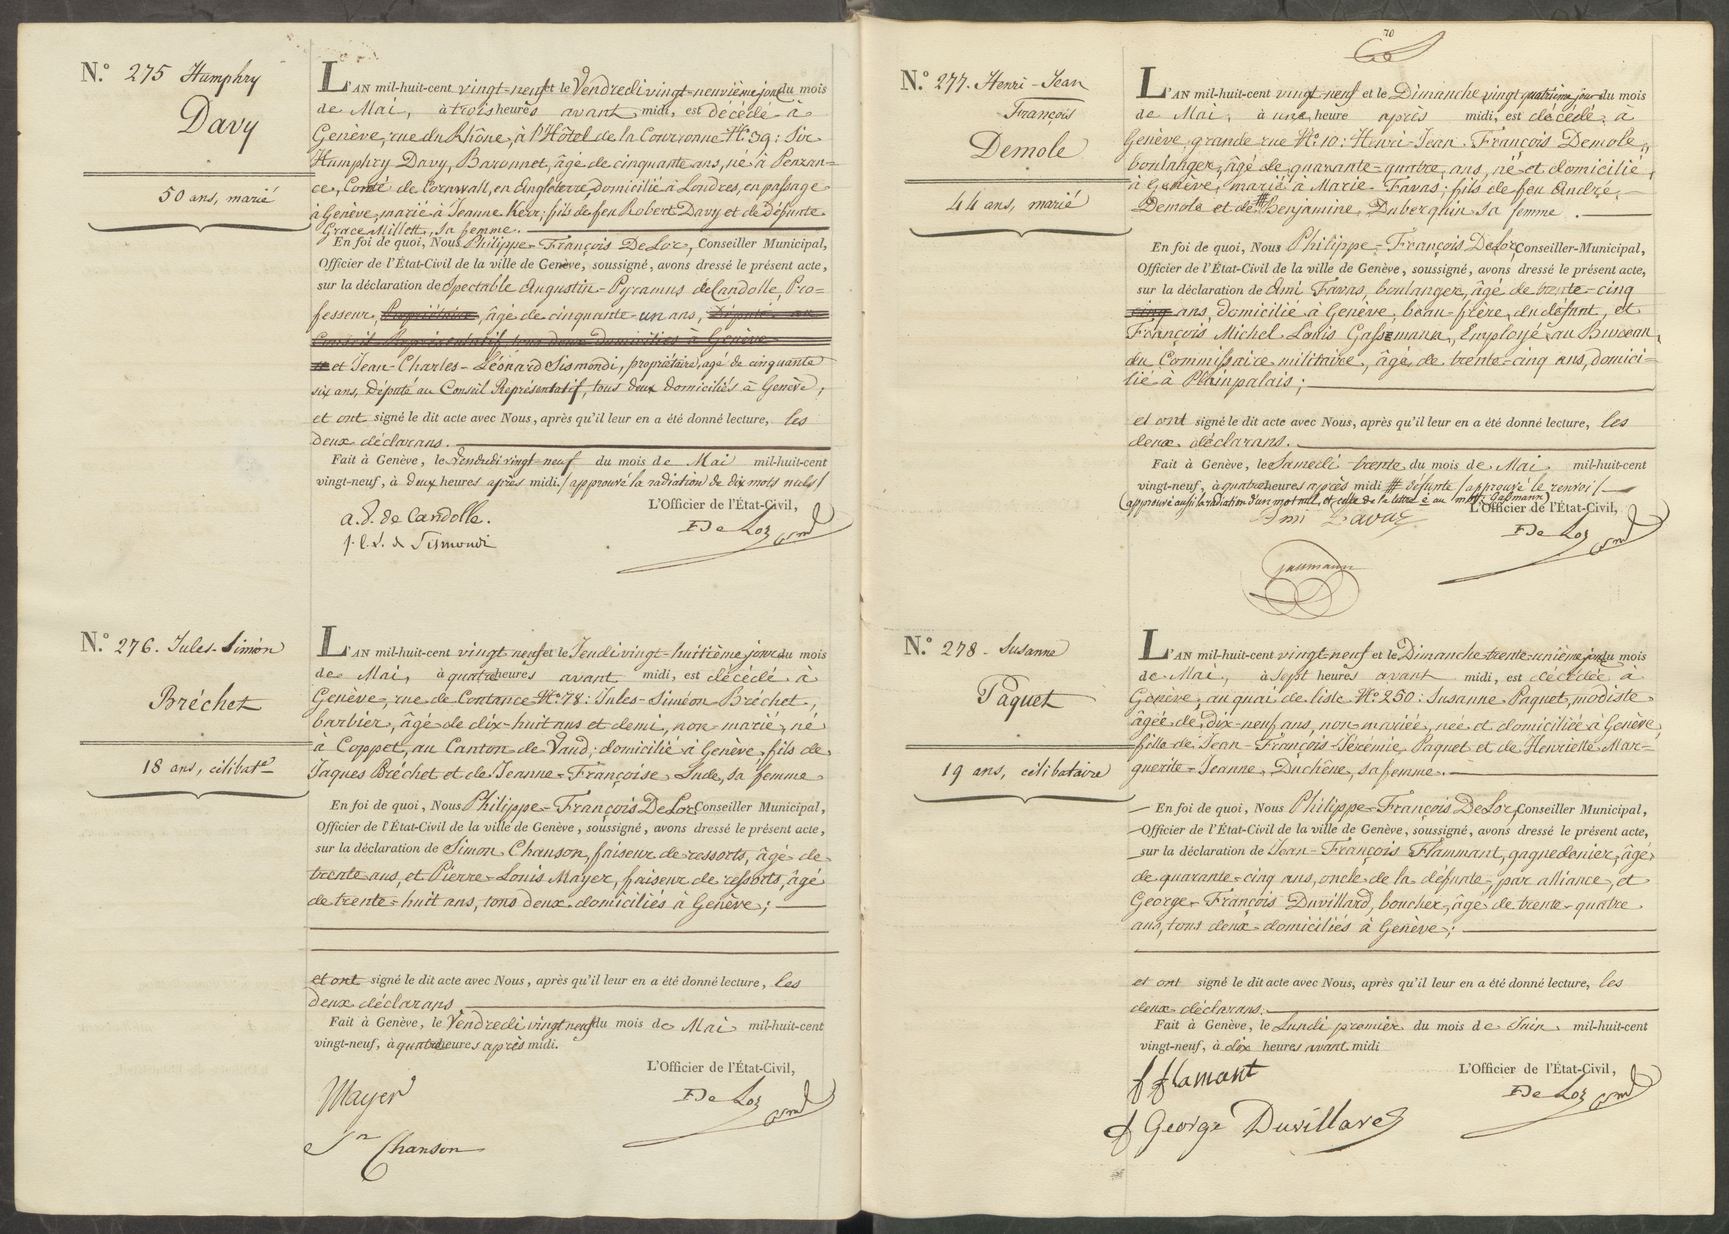 N.º 275 Humphry
Davy
50 ans, marié
L'AN mil-huit-cent vingt-neuf et le Vendredi vingt-neuvième jour du mois
de Mai, à trois heures avant midi, est décédé à
Genève, rue du Rhône, à l'Hôtel de la Couronne Nº 39: Sir
Humphry Davy, Baronnet, âgé de cinquante ans, né à Penzan=
ce, Comté de Cornwall, en Angleterre, domicilié à Londres, en passage
à Genève, marié à Jeanne Kerr; fils de feu Robert Davy et de défunte
Grace Millett, sa femme.
En foi de quoi, Nous Philippe-François DeLor, Conseiller Municipal,
Officier de l'État-Civil de la ville de Genève, soussigné, avons dressé le présent acte,
sur la déclaration de Spectable Augustin-Pyramus de Candolle, Pro=
fesseur, Propriétaire, âgé de cinquante-un ans, Député au
Conseil Représentatif, tous deux domiciliés à Genève
et Jean-Charles-Léonard Sismondi, propriétaire, agé de cinquante
six ans, Député au Conseil Représentatif, tous deux domiciliés à Genève;
et ont signé le dit acte avec Nous, après qu'il leur en a été donné lecture, les
deux déclarans.
Fait à Genève, le Vendredi vingt-neuf du mois de Mai mil-huit-cent
vingt-neuf, à deux heures après midi. / approuvé la radiation de dix mots nuls /
L'Officier de l'État-Civil,
a. P. de Candolle.
DeLor
J. C. L. de Sismondi
N.º 276. Jules-Siméon
Bréchet
18 ans, célibatre
L'AN mil-huit-cent vingt neuf et le Jeudi vingt-huitième jour du mois
de Mai, à quatre heures avant midi, est décédé à
Genève, rue de Coutance Nº 78: Jules-Siméon Bréchet,
barbier, âgé de dix-huit ans et demi, non-marié, né
à Coppet, au Canton de Vaud; domicilié à Genève, fils de
Jaques Bréchet et de Jeanne-Françoise Lude, sa femme
En foi de quoi, Nous Philippe-François DeLor Conseiller Municipal,
Officier de l'État-Civil de la ville de Genève, soussigné, avons dressé le présent acte,
sur la déclaration de Simon Chanson, faiseur de ressorts, âgé de
trente ans, et Pierre-Louis Mayer, faiseur de ressorts, âgé
de trente-huit ans, tous deux domiciliés à Genève;
et ont signé le dit acte avec Nous, après qu'il leur en a été donné lecture, les
deux déclarans
Fait à Genève, le Vendredi vingt neuf du mois de Mai mil-huit-cent
vingt-neuf, à quatre heures après midi.
L'Officier de l'État-Civil,
Mayer
DeLor
Sn Chanson
70
N.º 277. Henri-Jean
François
Demole
44 ans, marié
L'AN mil-huit-cent vingt-neuf et le Dimanche vingt quatrième jour du mois
de Mai, à une heure après midi, est décédé à
Genève, grande rue Nº 10: Henri-Jean-François Demole,
boulanger, âgé de quarante-quatre ans, né et domicilié
à Genève; marié à Marie Favas; fils de feu André
Demole et de # Benjamine Duberghin sa femme.
En foi de quoi, Nous Philippe-François DeLor, Conseiller-Municipal,
Officier de l'État-Civil de la ville de Genève, soussigné, avons dressé le présent acte,
sur la déclaration de Ami Favas, boulanger, âgé de trente-cinq
cinq ans, domicilié à Genève, beau-frère du défunt, et
François Michel Louis Gassmann, Employé au Bureau
du Commissaire militaire, âgé de trente-cinq ans, domici=
lié à Plainpalais;
et ont signé le dit acte avec Nous, après qu'il leur en a été donné lecture, les
deux déclarans.
Fait à Genève, le Samedi trente du mois de Mai, mil-huit-cent
vingt-neuf, à quatre heures après midi # défunte / approuvé le renvoi /
(approuvé aussi la radiation d'un mot nul, et celle de la lettre e au mot Gassmann)
L'Officier de l'État-Civil,
Ami Favas
DeLor
Gassmann
N.º 278 - Susanne
Paquet
19 ans, célibataire
L'AN mil-huit-cent vingt-neuf et le Dimanche trente-unième jour du mois
de Mai, à sept heures avant midi, est décédée à
Genève, au quai de l'isle Nº 250: Susanne Paquet, modiste
âgée de dix-neuf ans, non mariée, née et domiciliée à Genève
fille de Jean-François-Jérémie Paquet et de Henriette Mar=
guerite-Jeanne Duchêne, sa femme.
En foi de quoi, Nous Philippe-François DeLor, Conseiller Municipal,
Officier de l'État-Civil de la ville de Genève, soussigné, avons dressé le présent acte,
sur la déclaration de Jean-François Flammant, gagnedenier, âgé
de quarante-cinq ans, oncle de la défunte, par alliance, et
George-François Duvillard, boucher, âgé de trente-quatre
ans, tous deux domiciliés à Genève;
et ont signé le dit acte avec Nous, après qu'il leur en a été donné lecture, les
deux déclarans.
Fait à Genève, le Lundi premier du mois de Juin mil-huit-cent
vingt-neuf, à dix heures avant midi
L'Officier de l'État-Civil,
f flamant
DeLor
f George Duvillard